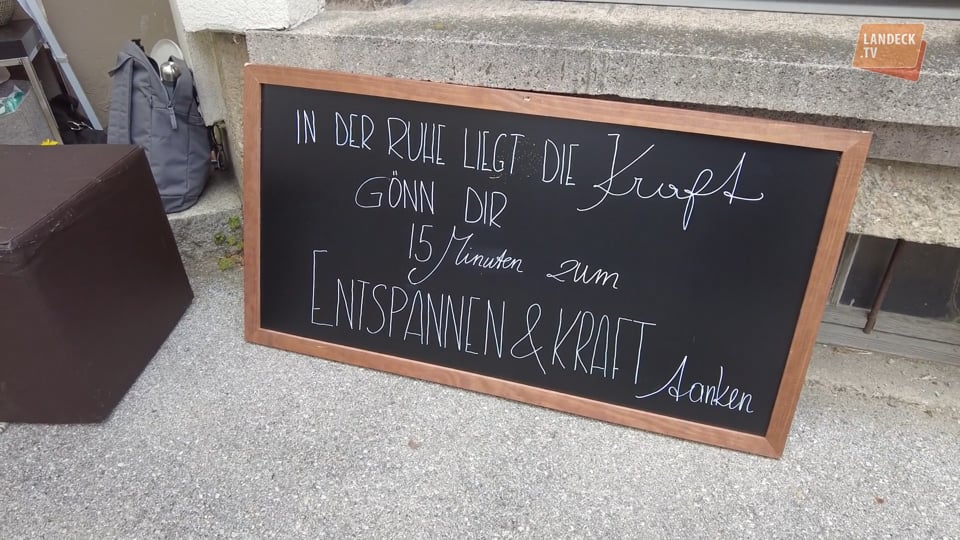 LANDECK
.TV
IN DER RUHE LIEGT DIE Kraft
GÖNN DIR
15 Minuten zum
ENTSPANNEN & KRAFT tanken